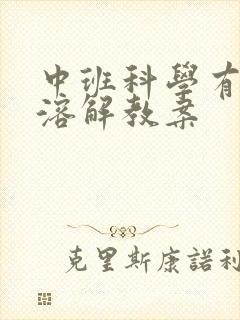 中班科學有
溶解教案
克里斯康諾利